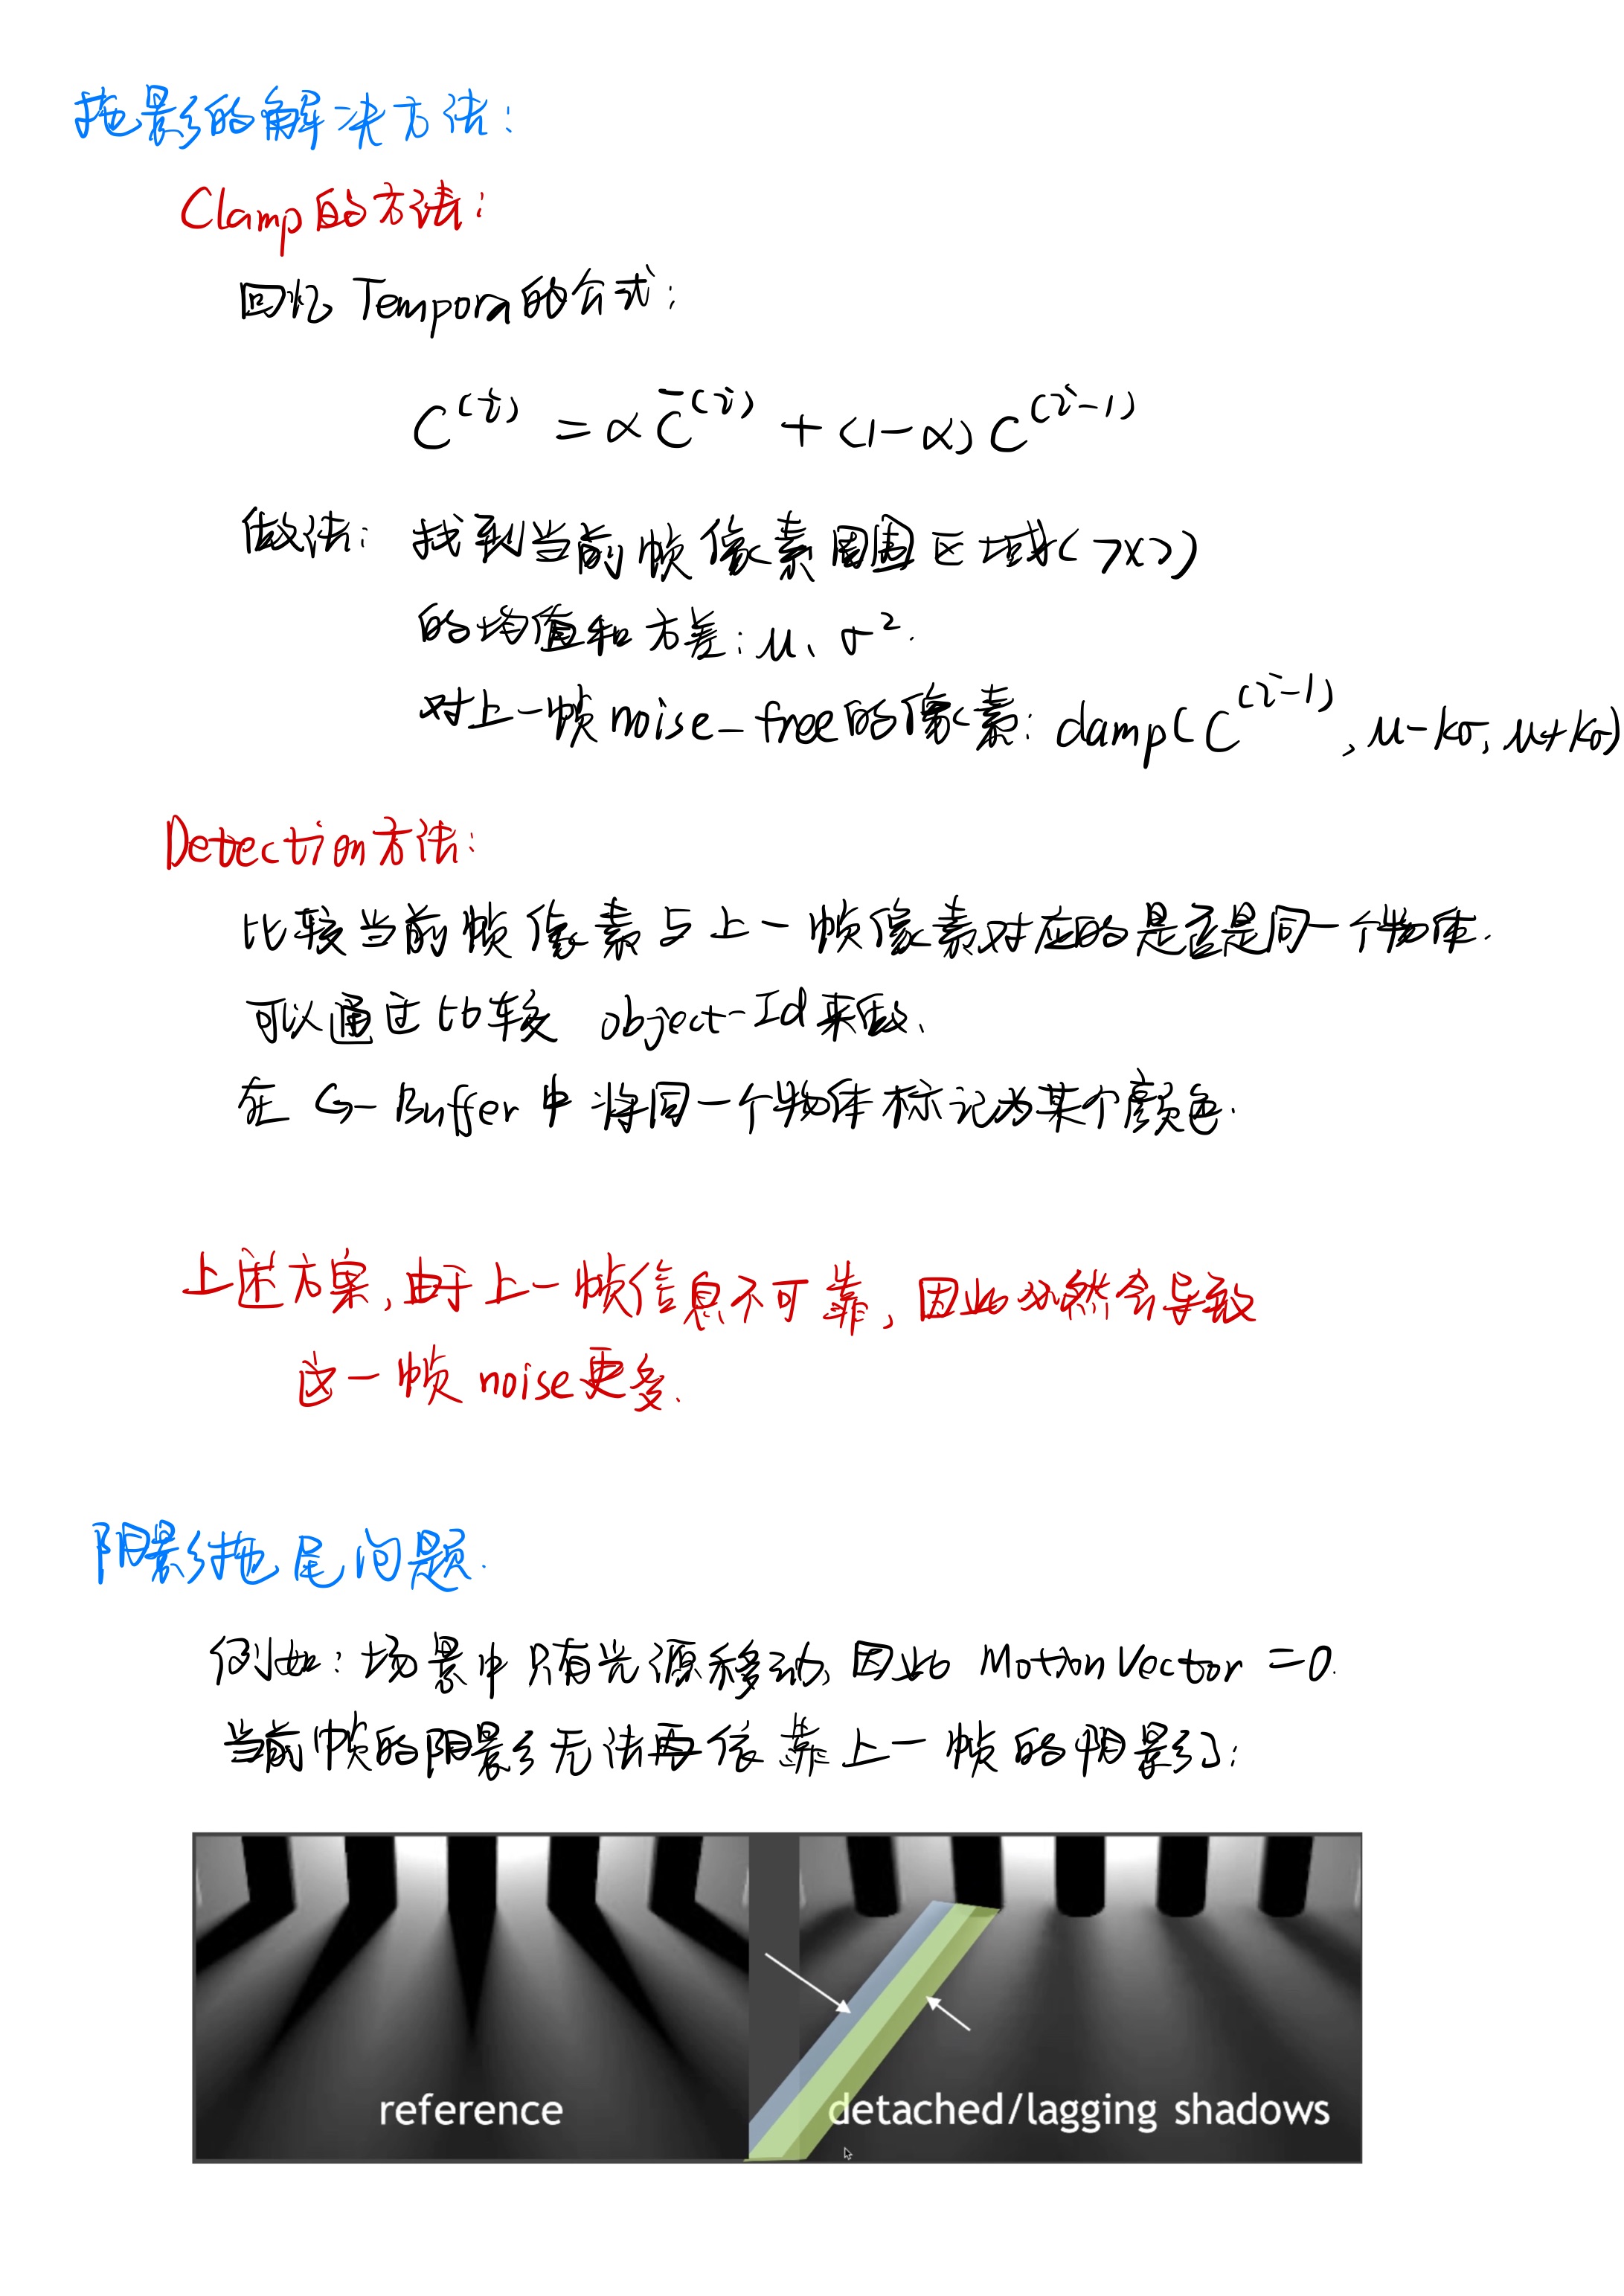 拖影的解决方法：
Clamp的方法：
回忆 Tempora的公式：
C^(i) = α C̄^(i) + (1-α) C^(i-1)
做法：找到当前帧像素周围区域(7x7)
的均值和方差：μ、σ².
对上一帧noise-free的像素：clamp(C^(i-1), μ-kσ, μ+kσ)
Detection方法：
比较当前帧像素与上一帧像素对应的是否是同一个物体.
可以通过比较 object-Id来做、
在 G-Buffer中将同一个物体标记为某个颜色.
上述方案,由于上一帧信息不可靠,因此必然会导致
这一帧noise更多.
阴影拖尾问题.
例如：场景中只有光源移动,因此 Motion Vector =0.
当前帧的阴影无法再依靠上一帧的阴影了：
reference
detached/lagging shadows